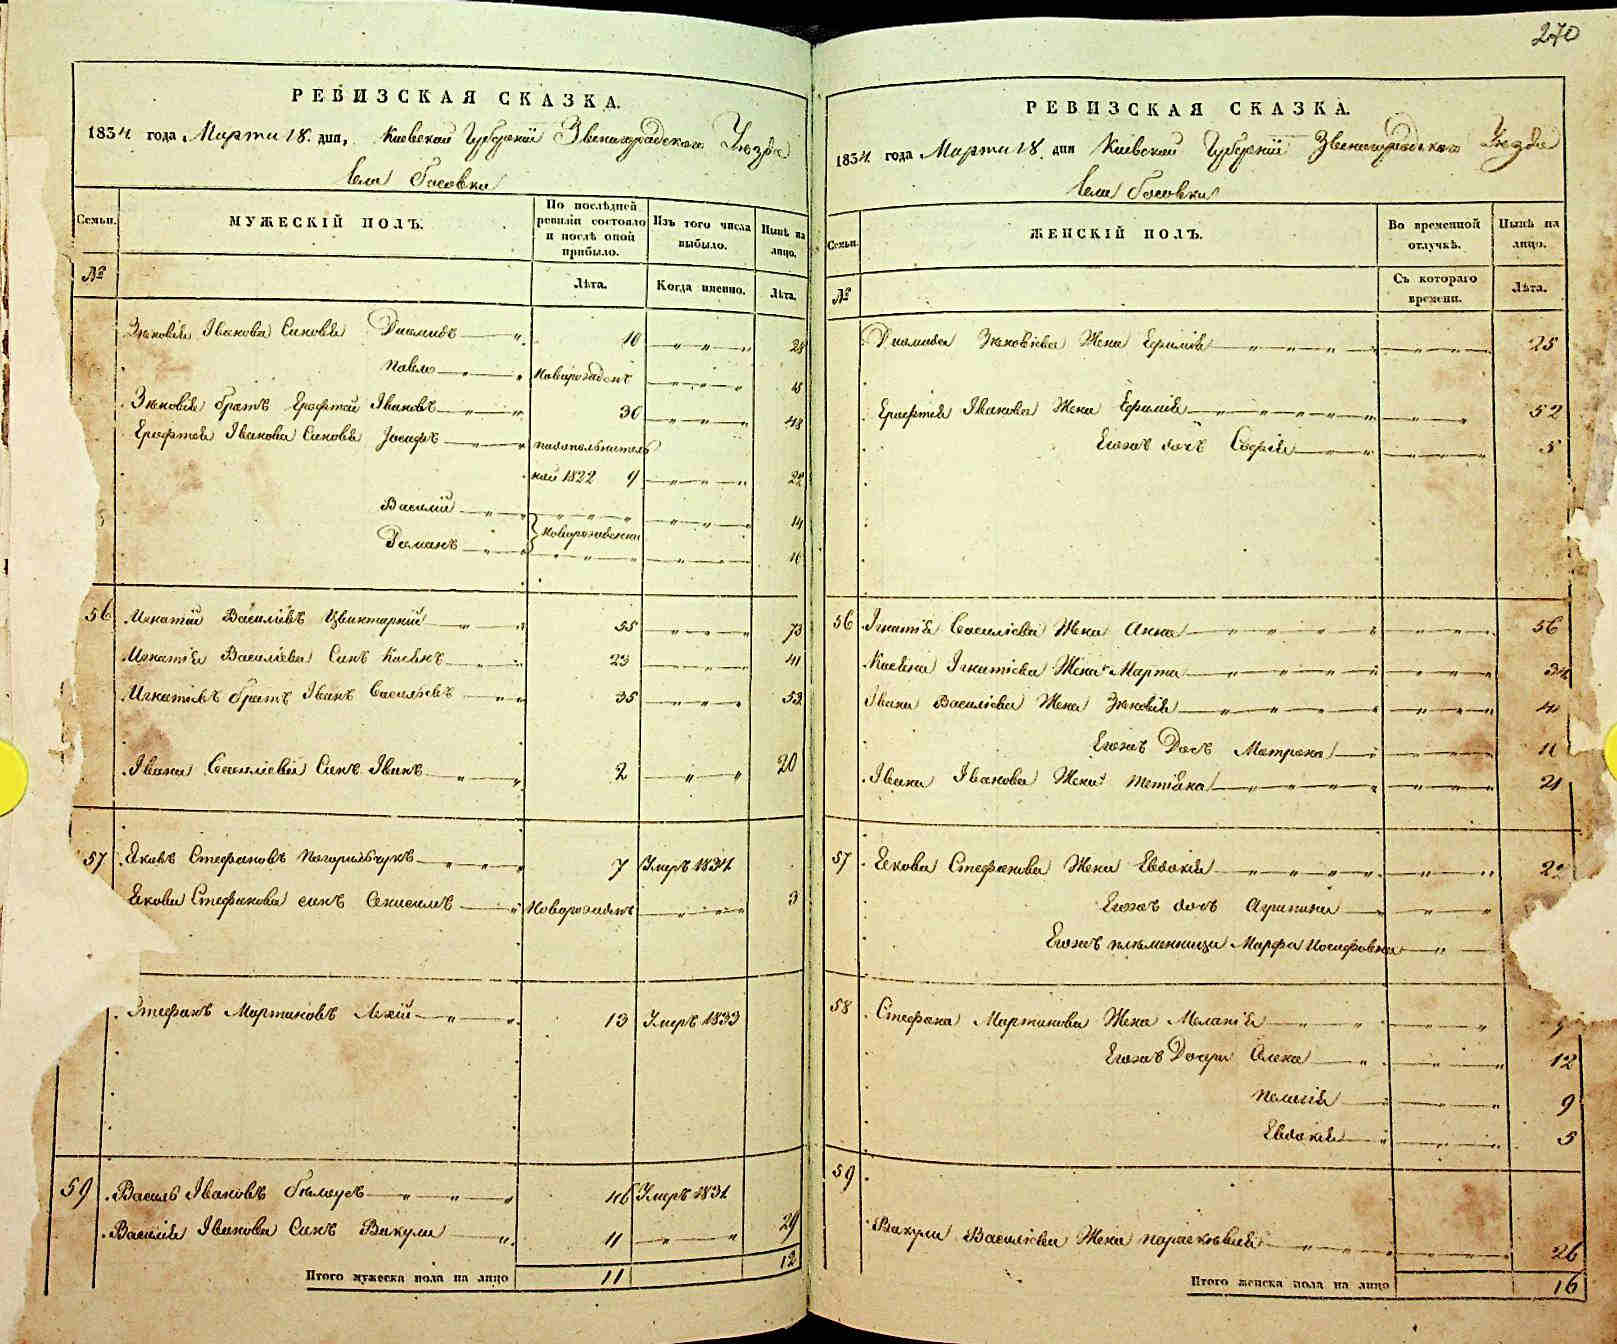 270
РЕВИЗСКАЯ СКАЗКА.
1834 года Марта 18. дня, Киевской Губерніи Звенигородского Уезда
Села Гусовки
Семьи.
МУЖЕСКІЙ ПОЛЪ.
По послѣдней ревизіи состояло и послѣ оной прибыло.
Изъ того числа выбыло.
Нынѣ на лицо.
№
Лѣта.
Когда именно.
Лѣта.
Зѣновія Іванова Синовья Диамидъ 10 28
Павло Новорожденъ 15
Зѣновія братъ Ерофтей Івановъ 30 48
Ерофтея Іванова Синовья Іосифъ пополнитель
ной 1822 9 22
Василій 14
Новорожденни
Романъ 10
56 Игнатій Василіевъ Цвинтарній 55 73
Игнатія Василіева Синъ 23 41
Игнатіевъ братъ Іванъ Василіевъ 35 53
Івана Василіева Синъ Іванъ 2 20
57 Яковъ Стефановъ Погорилъчукъ 7 Умеръ 1831
Якова Стефанова синъ Новорожденъ 3
Стефанъ Мартиновъ 13 Умеръ 1833
59 Василь Івановъ Бѣлоусъ 46 Умеръ 1831
Василія Іванова Синъ Вакула 11 29
Итого мужеска пола на лицо 11 12
РЕВИЗСКАЯ СКАЗКА.
1834 года Марта 18. дня Кіевской Губерніи Звенигородского Уезда
Села Гусовки
Семьи.
ЖЕНСКІЙ ПОЛЪ.
Во временной отлучкѣ.
Нынѣ на лицо.
№
Съ котораго времени.
Лѣта.
Диамида Зѣновіева Жена Ефимія 25
Ерофтея Іванова Жена Ефимія 52
Егожъ дочь Софія 5
56 Ігнатія Василіева Жена Анна 56
Ігнатіева Жена Марта 34
Івана Василіева Жена Зѣновія
Егожъ Дочь Матрона
Івана Іванова Жена Тетіяна 21
57 Якова Стефанова Жена Евдокія
Егожъ дочь Агрипина
Егожъ племенница Марфа Иосифовна
58 Стефана Мартинова Жена Меланія
Егожъ Дочери Олена 12
Пелагія 9
Евдокія 5
59
Вакули Василіева Жена Параскевія 26
Итого женска пола на лицо 16